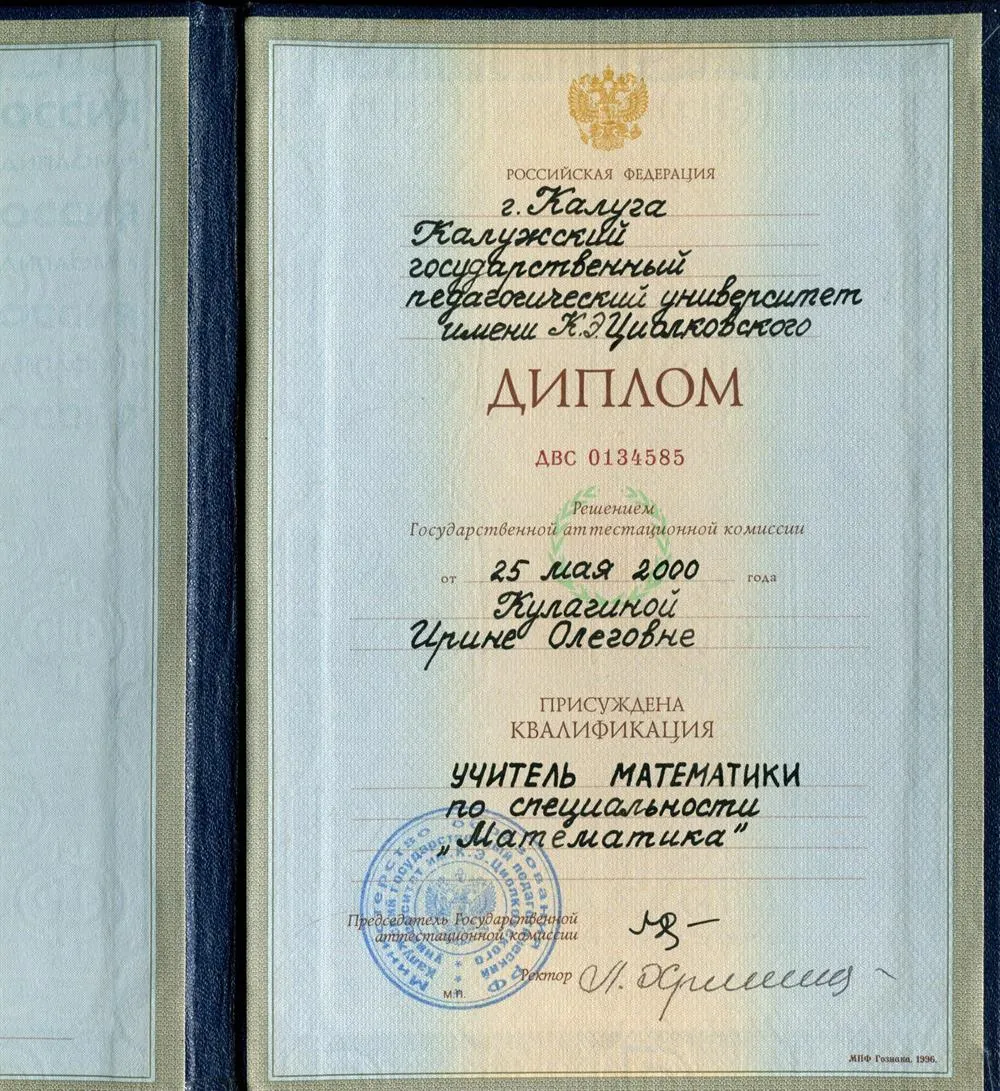 РОССИЙСКАЯ ФЕДЕРАЦИЯ
г. Калуга
Калужский
государственный
педагогический университет
имени К.Э.Циолковского
ДИПЛОМ
ДВС 0134585
Решением
Государственной аттестационной комиссии
от 25 мая 2000 года
Кулагиной
Ирине Олеговне
ПРИСУЖДЕНА
КВАЛИФИКАЦИЯ
УЧИТЕЛЬ МАТЕМАТИКИ
по специальности
„Математика"
Председатель Государственной
аттестационной комиссии
Ректор
М.П.
МПФ Гознака. 1996.